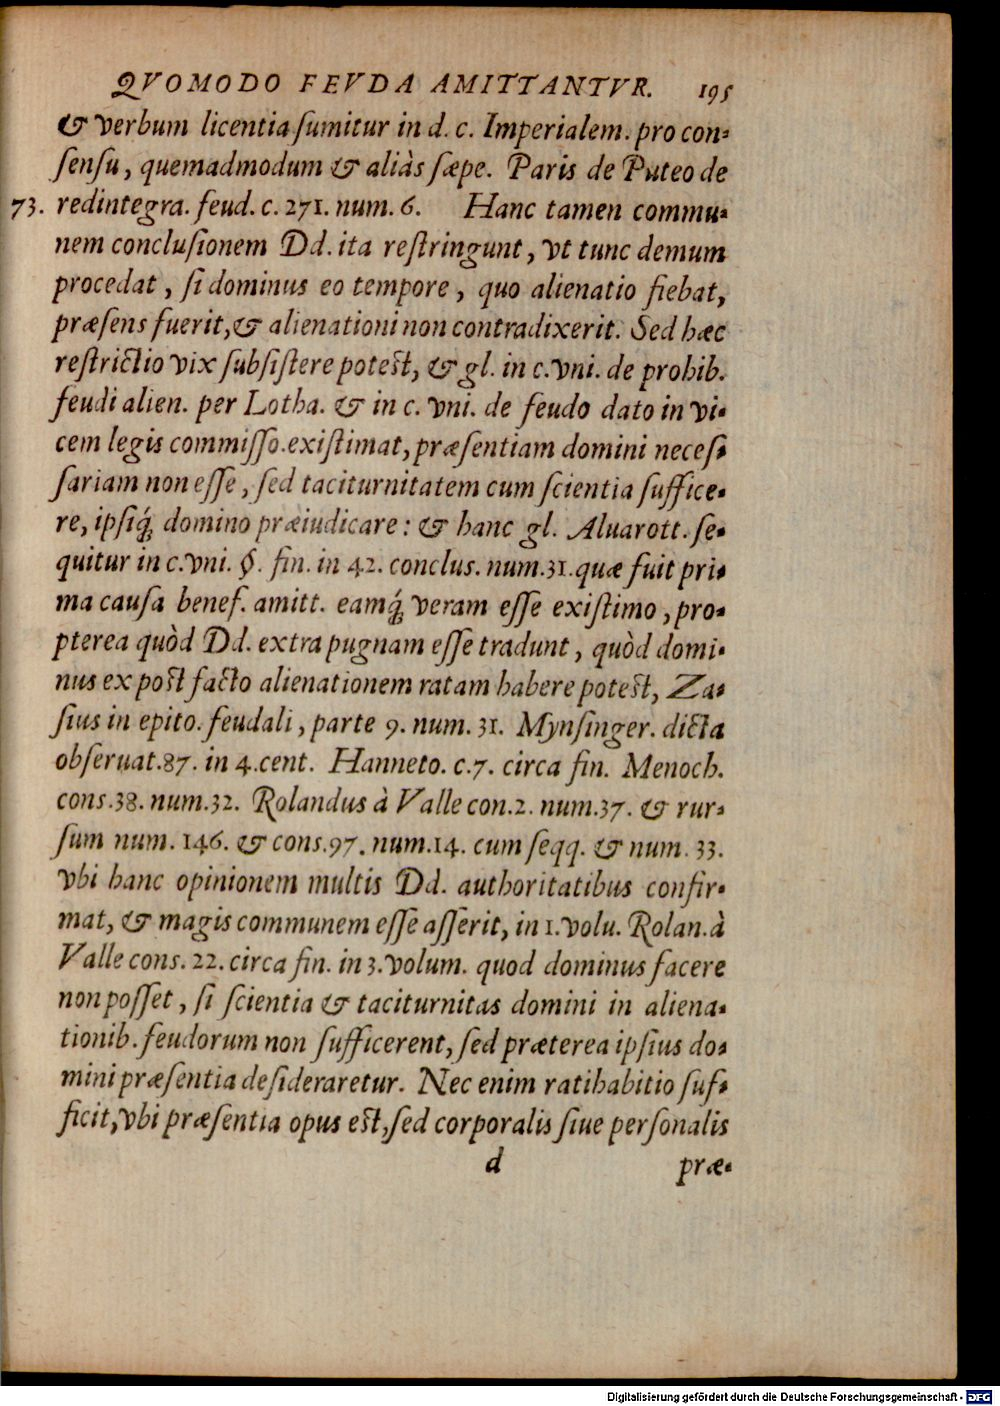 QVOMODO FEVDA AMITTANTVR. 195
& verbum licentia sumitur in d. c. Imperialem. pro con-
sensu, quemadmodum & aliàs sæpe. Paris de Puteo de
73. redintegra. feud. c. 271. num. 6. Hanc tamen commu-
nem conclusionem Dd. ita restringunt, vt tunc demum
procedat, si dominus eo tempore, quo alienatio fiebat,
præsens fuerit, & alienationi non contradixerit. Sed hæc
restrictio vix subsistere potest, & gl. in c. vni. de prohib.
feudi alien. per Lotha. & in c. vni. de feudo dato in vi-
cem legis commisso. existimat, præsentiam domini neces-
sariam non esse, sed taciturnitatem cum scientia suffice-
re, ipsiq́; domino præiudicare: & hanc gl. Aluarott. se-
quitur in c. vni. §. fin. in 42. conclus. num. 31. quæ fuit pri-
ma causa benef. amitt. eamq́; veram esse existimo, pro-
pterea quòd Dd. extra pugnam esse tradunt, quòd domi-
nus ex post facto alienationem ratam habere potest, Za-
sius in epito. feudali, parte 9. num. 31. Mynsinger. dicta
obseruat. 87. in 4. cent. Hanneto. c. 7. circa fin. Menoch.
cons. 38. num. 32. Rolandus à Valle con. 2. num. 37. & rur-
sum num. 146. & cons. 97. num. 14. cum seqq. & num. 33.
vbi hanc opinionem multis Dd. authoritatibus confir-
mat, & magis communem esse asserit, in 1. volu. Rolan. à
Valle cons. 22. circa fin. in 3. volum. quod dominus facere
non posset, si scientia & taciturnitas domini in aliena-
tionib. feudorum non sufficerent, sed præterea ipsius do-
mini præsentia desideraretur. Nec enim ratihabitio suf-
ficit, vbi præsentia opus est, sed corporalis siue personalis
d præ-
Digitalisierung gefördert durch die Deutsche Forschungsgemeinschaft - DFG